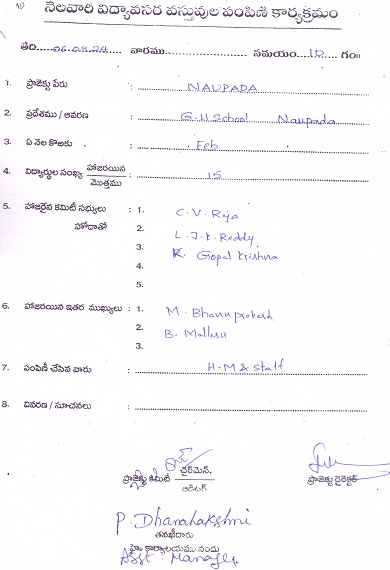 నెలవారి విద్యావసర వస్తువుల పంపిణీ కార్యక్రమం
తేది.... వారము.... సమయం..10.. గం॥
1. ప్రాజెక్టు పేరు : NAUPADA
2. ప్రదేశము / ఆవరణ : G.H School Naupada
3. ఏ నెల కొఱకు : Feb
4. విద్యార్థుల సంఖ్య హాజరయిన / మొత్తము : 15
5. హాజరైన కమిటీ సభ్యులు : 1. C.V. Raja
హోదాతో 2. L.J.K. Reddy
3. K. Gopal Krishna
4.
5.
6. హాజరయిన ఇతర ముఖ్యులు : 1. M. Bhanu prakash
2. B. Mallesu
3.
7. పంపిణీ చేసిన వారు : H.M & Staff
8. వివరణ / సూచనలు :
ప్రాజెక్టు కమిటీ చైర్మెన్. ప్రాజెక్టు డైరెక్టర్
ఆడిటర్
P. Dhanalakshmi
తనఖీదారు
హై కార్యాలయము నందు
Asst. Manager